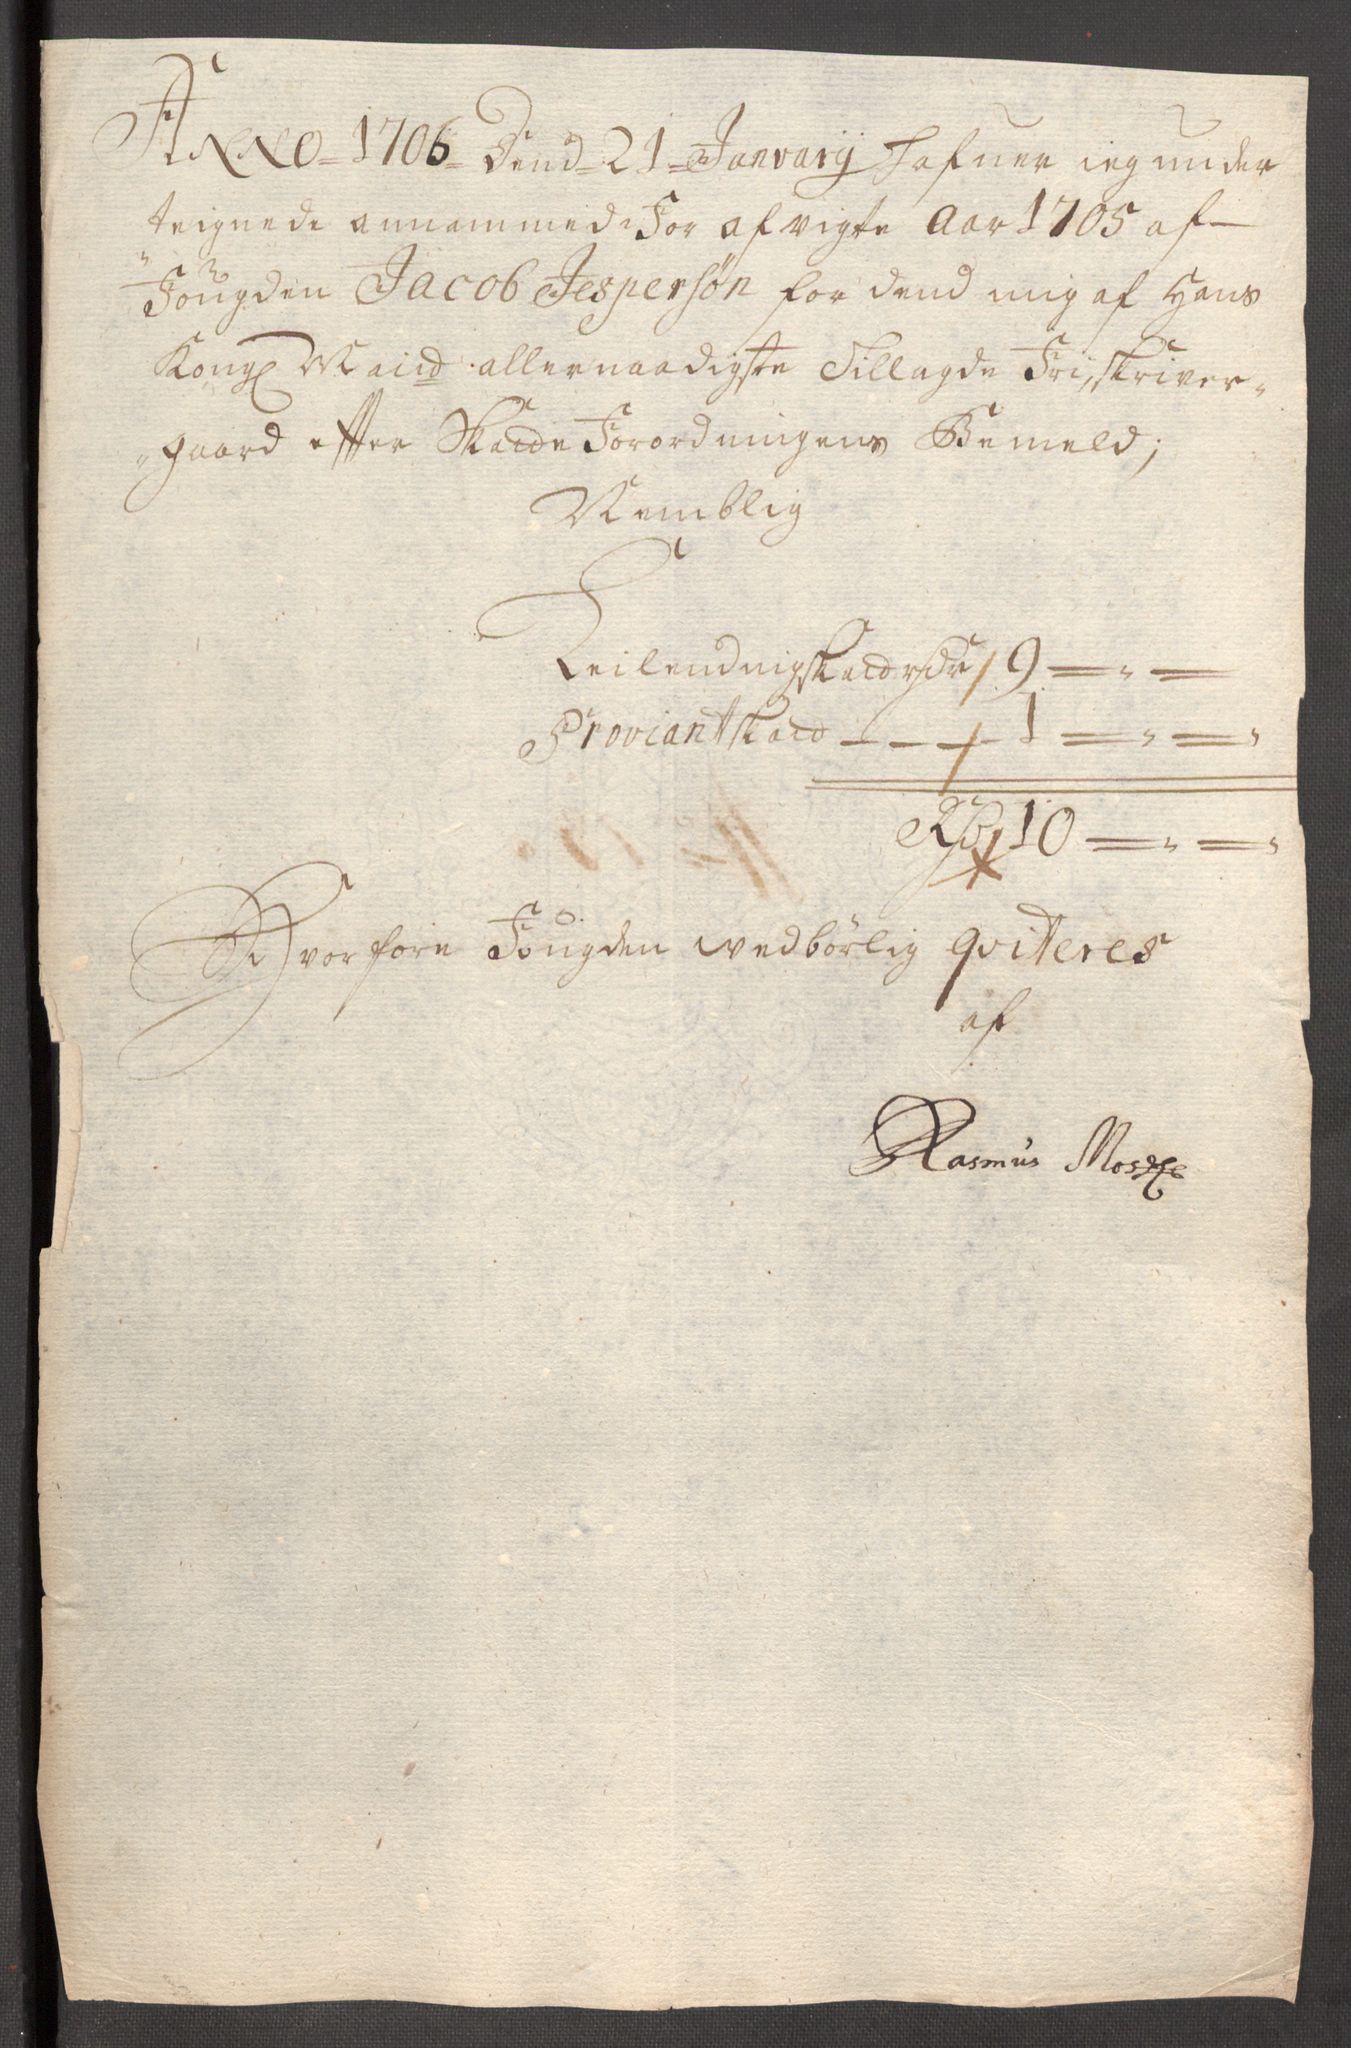 Anno 1706 Dend 21 Janvarij hafuer ieg under
teignede annammed for afvigte Aar 1705 af
Fougden Jacob Jespersøn for dend mig af Hans
Kongl Maid allernaadigste Tillagde Fri, skriver-
gaard efter Skatte Forordningens Bemeld;
Nemblig
Leilendnigskatt rdr 9 = " =
Proviantskatt - - - 1 = " = "
Rdr 10 = " = "
Hvorfore Fougden vedbørlig qviteres
af
Rasmus